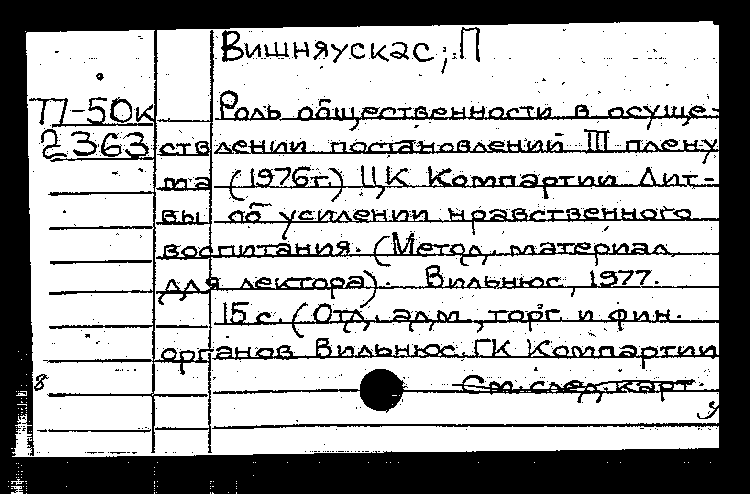 Вишняускас, П
П-50к
2363
Роль общественности в осуще-
ствлении постановлений III плену
ма (1976г.) ЦК Компартии Лит-
вы об усилении нравственного
воспитания. (Метод. материал
для лектора). Вильнюс, 1977.
15 с. (Отд. адм., торг. и фин.
органов Вильнюс. ГК Компартии
8
См. след. карт.